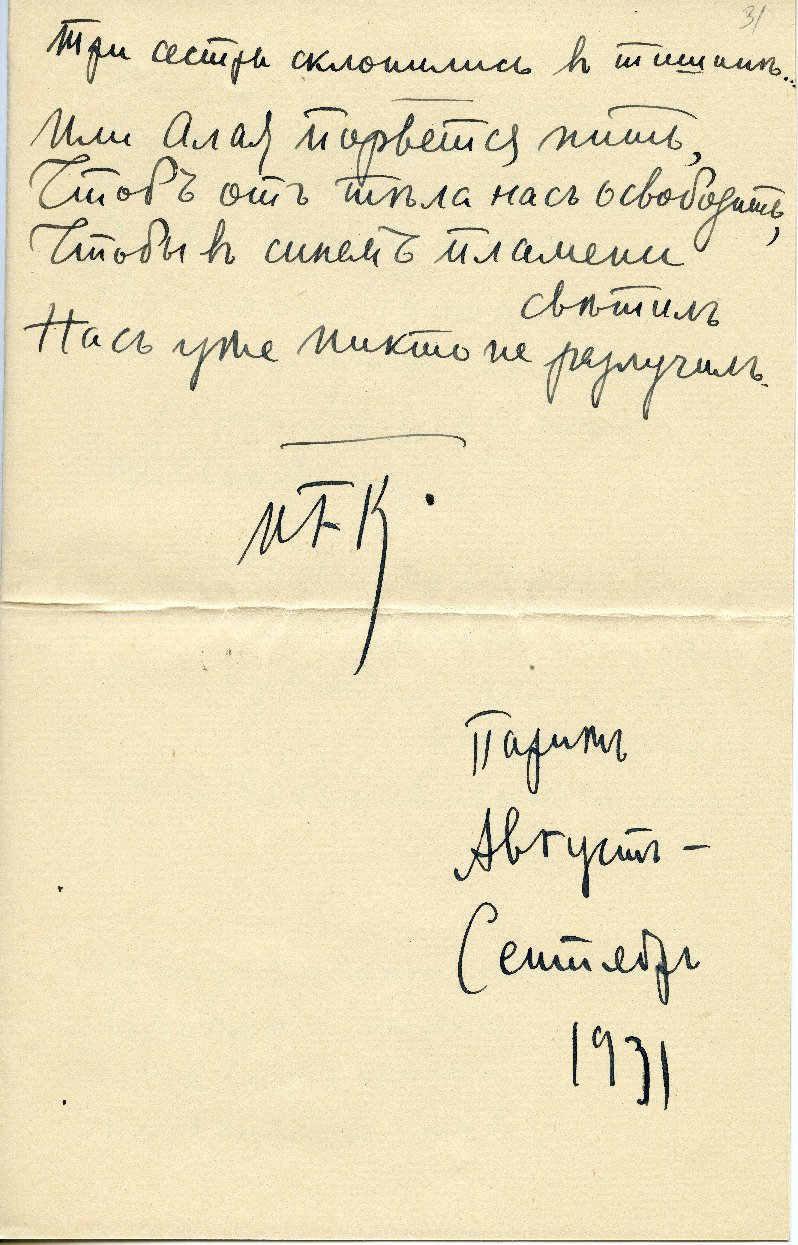 31
Три сестры склонились в тишинѣ...
Или Алая порвется нить,
Чтобъ отъ тѣла насъ освободить,
Чтобы въ синемъ пламени
свѣтилъ
Насъ уже никто не разлучилъ.
Парижъ
Августъ –
Сентябрь
1931